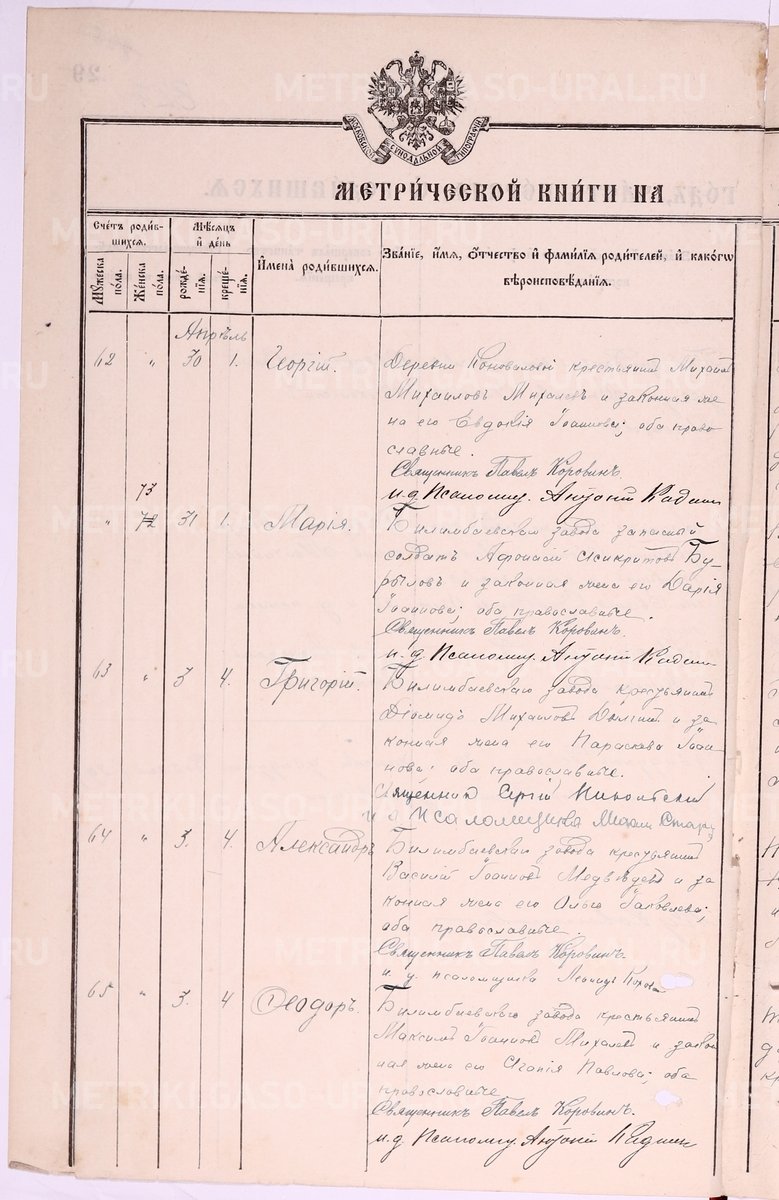 МОСКОВСКОЙ СѴНОДАЛЬНОЙ ТИПОГРАФІИ
МЕТРИ́ЧЕСКОЙ КНИ́ГИ НА
Сче́тъ роди́в-
шихся.
Мѣ́сяцъ
и҆ де́нь
И҆мена̀ роди́вшихся.
Зва́ніе, и҆́мя, ѻ҆́тчество и҆ фами́лія роди́телей, и҆ како́гѡ
вѣроисповѣ́данія.
Мꙋ́жеска
по́ла.
Же́нска
по́ла.
рожде́-
нія.
креще́-
нія.
Апрѣль
62 " 30 1. Георгій. Деревни Коноваловой крестьянинъ Михаилъ
Михаиловъ Михалевъ и законная же
на его Евдокія Іоаннова; оба право
славные.
Священникъ Павелъ Коровинъ.
и.д. Псаломщ. Антоній Кадшин
73
" 72 31 1. Марія. Билимбаевскаго завода запасный
солдатъ Афонасій Асикритовъ Бу-
рыловъ и законная жена его Дарія
Іоаннова; оба православные.
Священникъ Павелъ Коровинъ.
и.д. Псаломщ. Антоній Кадшин
63 " 3. 4. Григорій. Билимбаевскаго завода крестьянинъ
Діомидъ Михаиловъ и за
конная жена его Параскева Іоан
нова; оба православные.
Священникъ Сергій
и д Псаломщика
64 " 3. 4. Александръ Билимбаевскаго завода крестьянинъ
Василій Іоанновъ Медвѣдевъ и за
конная жена его Ольга Іаковлева;
оба православные.
Священникъ Павелъ Коровинъ.
и. д. псаломщика Леонидъ
65 " 3. 4 Ѳеодоръ. Билимбаевскаго завода крестьянинъ
Максимъ Іоанновъ Михалевъ и закон
ная жена его Агапія Павлова; оба
православные
Священникъ Павелъ Коровинъ.
и.д. Псаломщ. Антоній Кадшин
METRIKI.GASO-URAL.RU